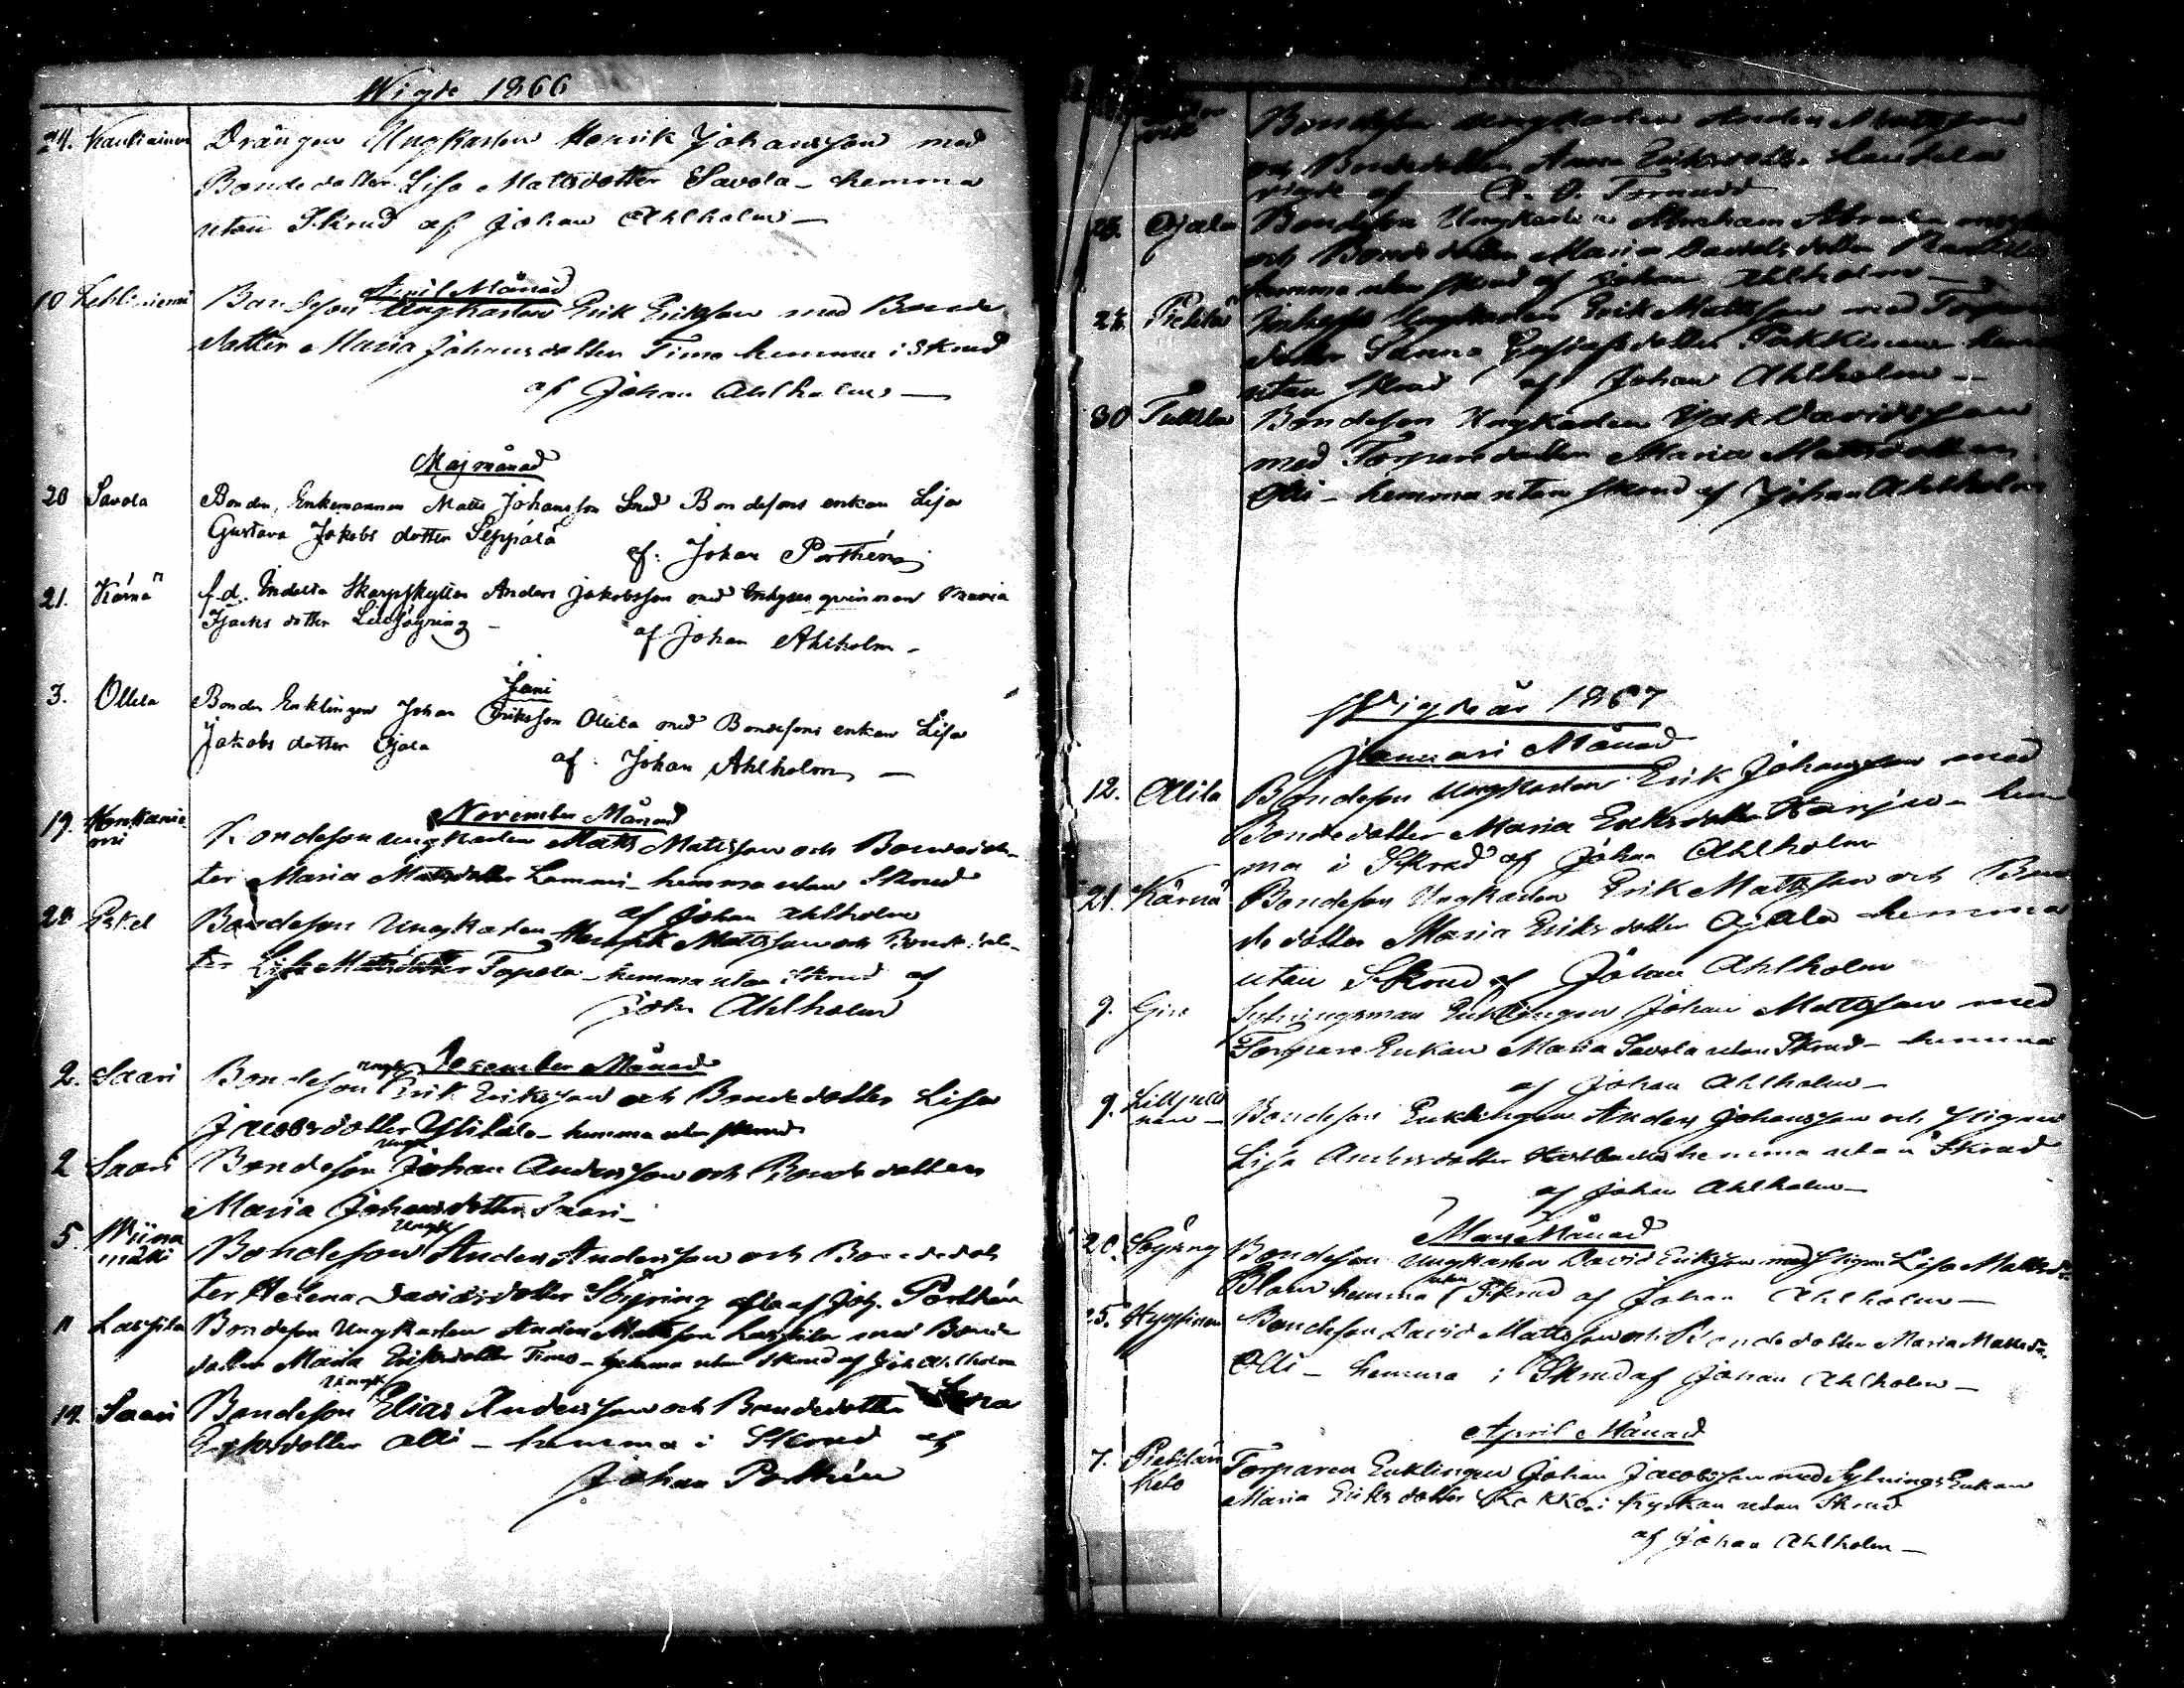 Wigde 1866
24. Kaukiainen Drängen Ungkarlen Henrik Johansson med
Bondedotter Lisa Mattsdotter Savola - hemma
utan Skrud af Johan Ahlholm -
April Månad
10 Bondeson Ungkarlen Erik Eriksson med Bonde
dotter Maria Johansdotter Timo hemma i Skrud
af Johan Ahlholm -
Majmånad
20 Savola Bonden, Enkemannen Matts Johansson Med Bondesons enkan Lisa
Gustava Jakobs dotter Seppälä
af: Johan Porthén
21. Kärnä f.d. Indelta Skarpskytten Anders Jakobsson med Inhyses qvinnan Maria
Isacks dotter Lillsöyring -
af Johan Ahlholm -
Juni
3. Ollila Bonden Enklingen Johan Eriksson Ollila med Bondesons enkan Lisa
Jakobs dotter Ojala
af: Johan Ahlholm -
November Månad
19. Bondeson ungkarlen Matts Mattsson och Bondedot-
ter Maria Mattsdotter Lammi - hemma utan Skrud
af Johan Ahlholm
Bondeson Ungkarlen Henrik Mattsson och Bondedot-
ter Lisa Mattsdotter Topola - hemma utan Skrud af
Joh. Ahlholm
December Månad
2. Saari Bondeson Ungk. Erik Eriksson och Bondedotter Lisa
Jacobsdotter Ylikälö - hemma utan skrud
2 Saari Bondeson Ungk. Johan Andersson och Bondedotter
Maria Johansdotter Saari -
5. Wiina
mäki Bondeson Ungk. Anders Andersson och Bondedot
ter Helena Davidsdotter Söyring af Joh. Porthén
11 Lassila Bondeson Ungkarlen Anders Mattsson Lassila med Bonde
dotter Maria Eriksdotter Timo - hemma utan Skrud af Joh Ahlholm
14. Saari Bondeson Ungk. Elias Andersson och Bondedotter
Eriksdotter Olli - hemma i Skrud af
Johan Porthén
Bondeson Ungkarlen Anders Mattsson
och Bondedotter Anna Eriksdotter
vigde af
Ojala Bondeson Ungkarlen Abraham
och Bondedotter Maria Davidsdotter
hemma utan skrud af Johan Ahlholm -
Pietilä Ungkarlen Erik Mattsson med
dotter Sanna Gustafsdotter Pakkinen
utan skrud af Johan Ahlholm -
30 Tullila Bondeson Ungkarlen Isak Davidsson
med Torparedotter Maria Mattsdotter
Olli - hemma utan skrud af Johan Ahlholm
Wigde år 1867
Januari Månad
12. Ollila Bondeson Ungkarlen Erik Johansson med
Bondedotter Maria Eriksdotter Harju - hem
ma i Skrud af Johan Ahlholm
21. Kärnä Bondeson Ungkarlen Erik Mattsson och Bon
dedotter Maria Eriksdotter Ojala hemma
utan Skrud af Johan Ahlholm
9. Sytningsman Enklingen Johan Mattsson med
Torpare Enkan Maria Savola utan Skrud - hemma
af Johan Ahlholm -
9. Bondeson Enklingen Anders Johansson och Pigan
Lisa Andersdotter hemma utan Skrud
af Johan Ahlholm -
Mars Månad
20. Söyring Bondeson Ungkarlen David Eriksson med Pigan Lisa Mattsd:
hemma utan Skrud af Johan Ahlholm -
25. Bondeson David Mattsson och Bondedotter Maria Mattsd:
Olli - hemma i Skrud af Johan Ahlholm -
April Månad
7. Pietilän
keto Torparen Enklingen Johan Jacobsson med Sytnings Enkan
Maria Eriksdotter i Kyrkan utan Skrud
af Johan Ahlholm -